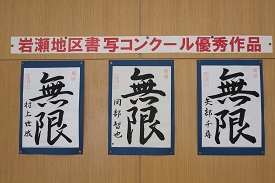 岩瀬地区書写コンクール優秀作品
無限
村上世成
無限
岡部智也
無限
矢部千尋